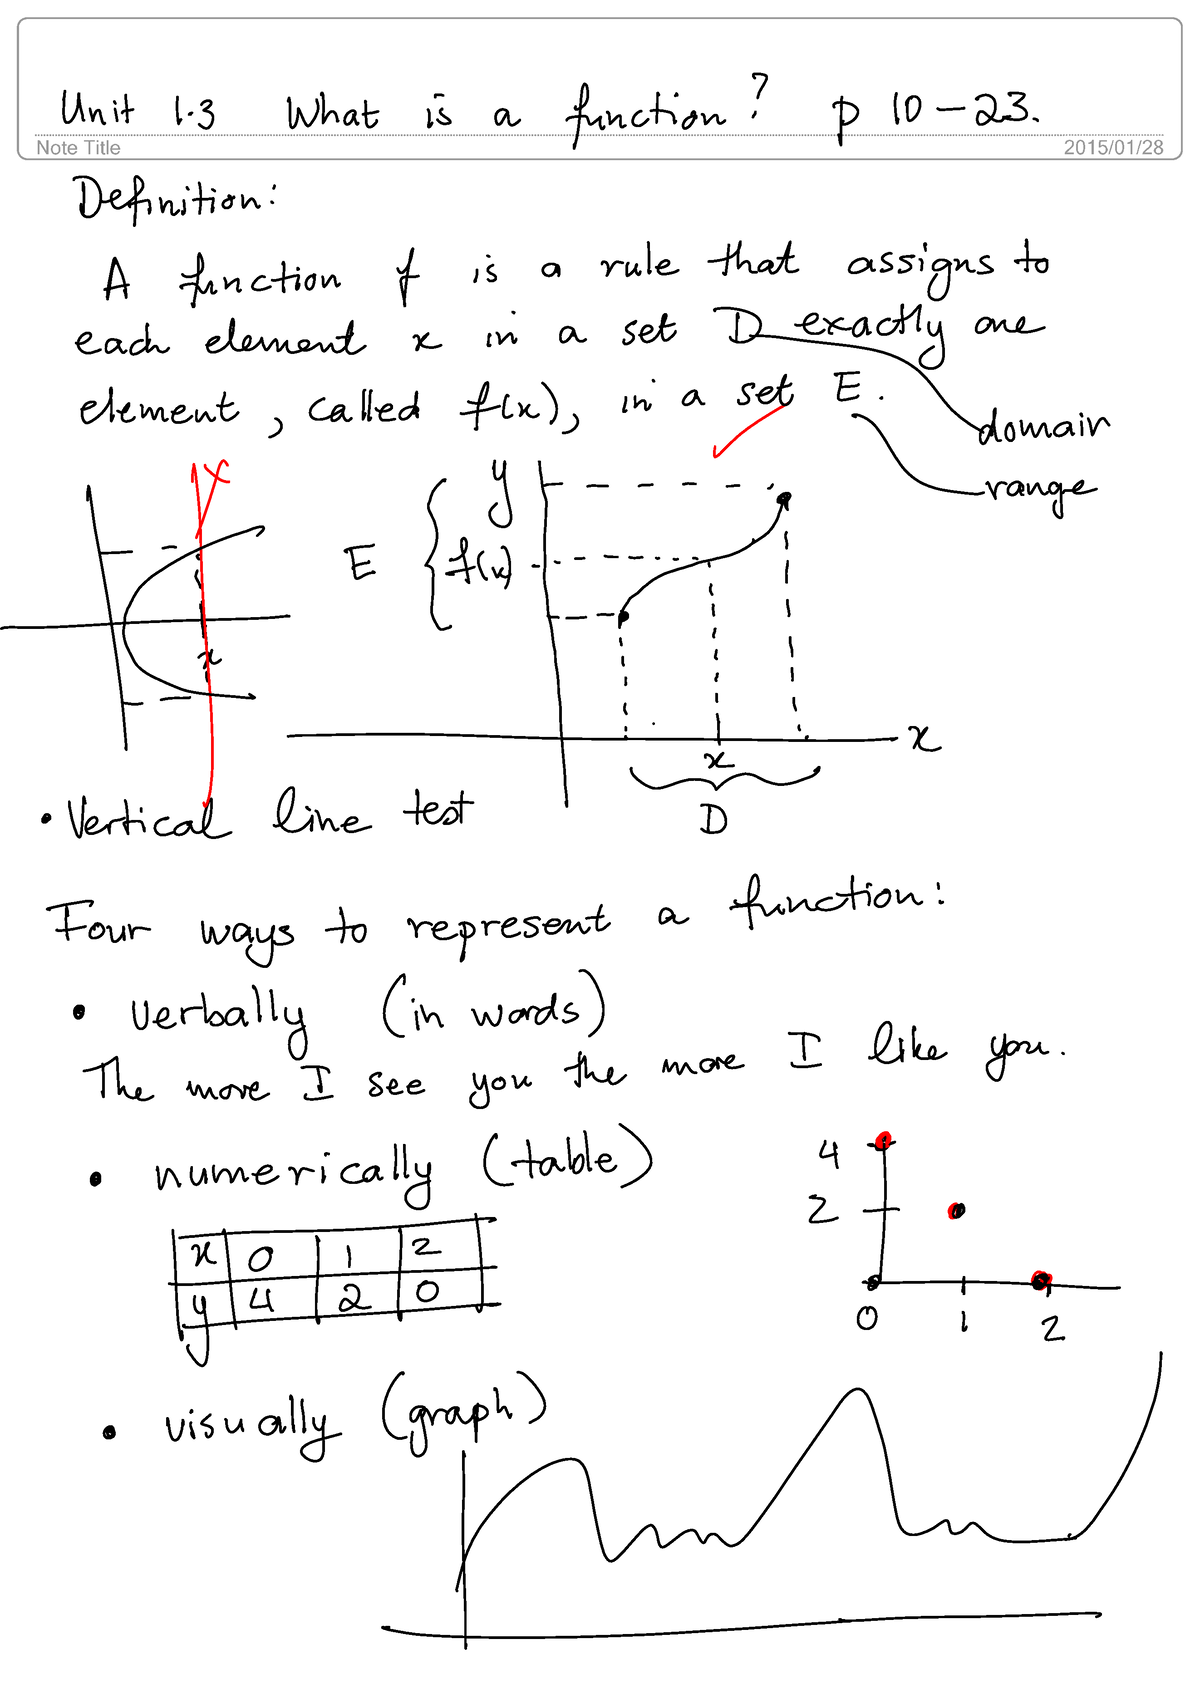 Unit 1.3 What is a function? p 10-23.
Note Title 2015/01/28
Definition:
A function f is a rule that assigns to
each element x in a set D exactly one
element, called f(x), in a set E.
domain
range
x
y
E f(x)
x
x
x
D
• Vertical line test
Four ways to represent a function:
• verbally (in words)
The more I see you the more I like you.
• numerically (table)
x 0 1 2
y 4 2 0
4
2
0 1 2
• visually (graph)